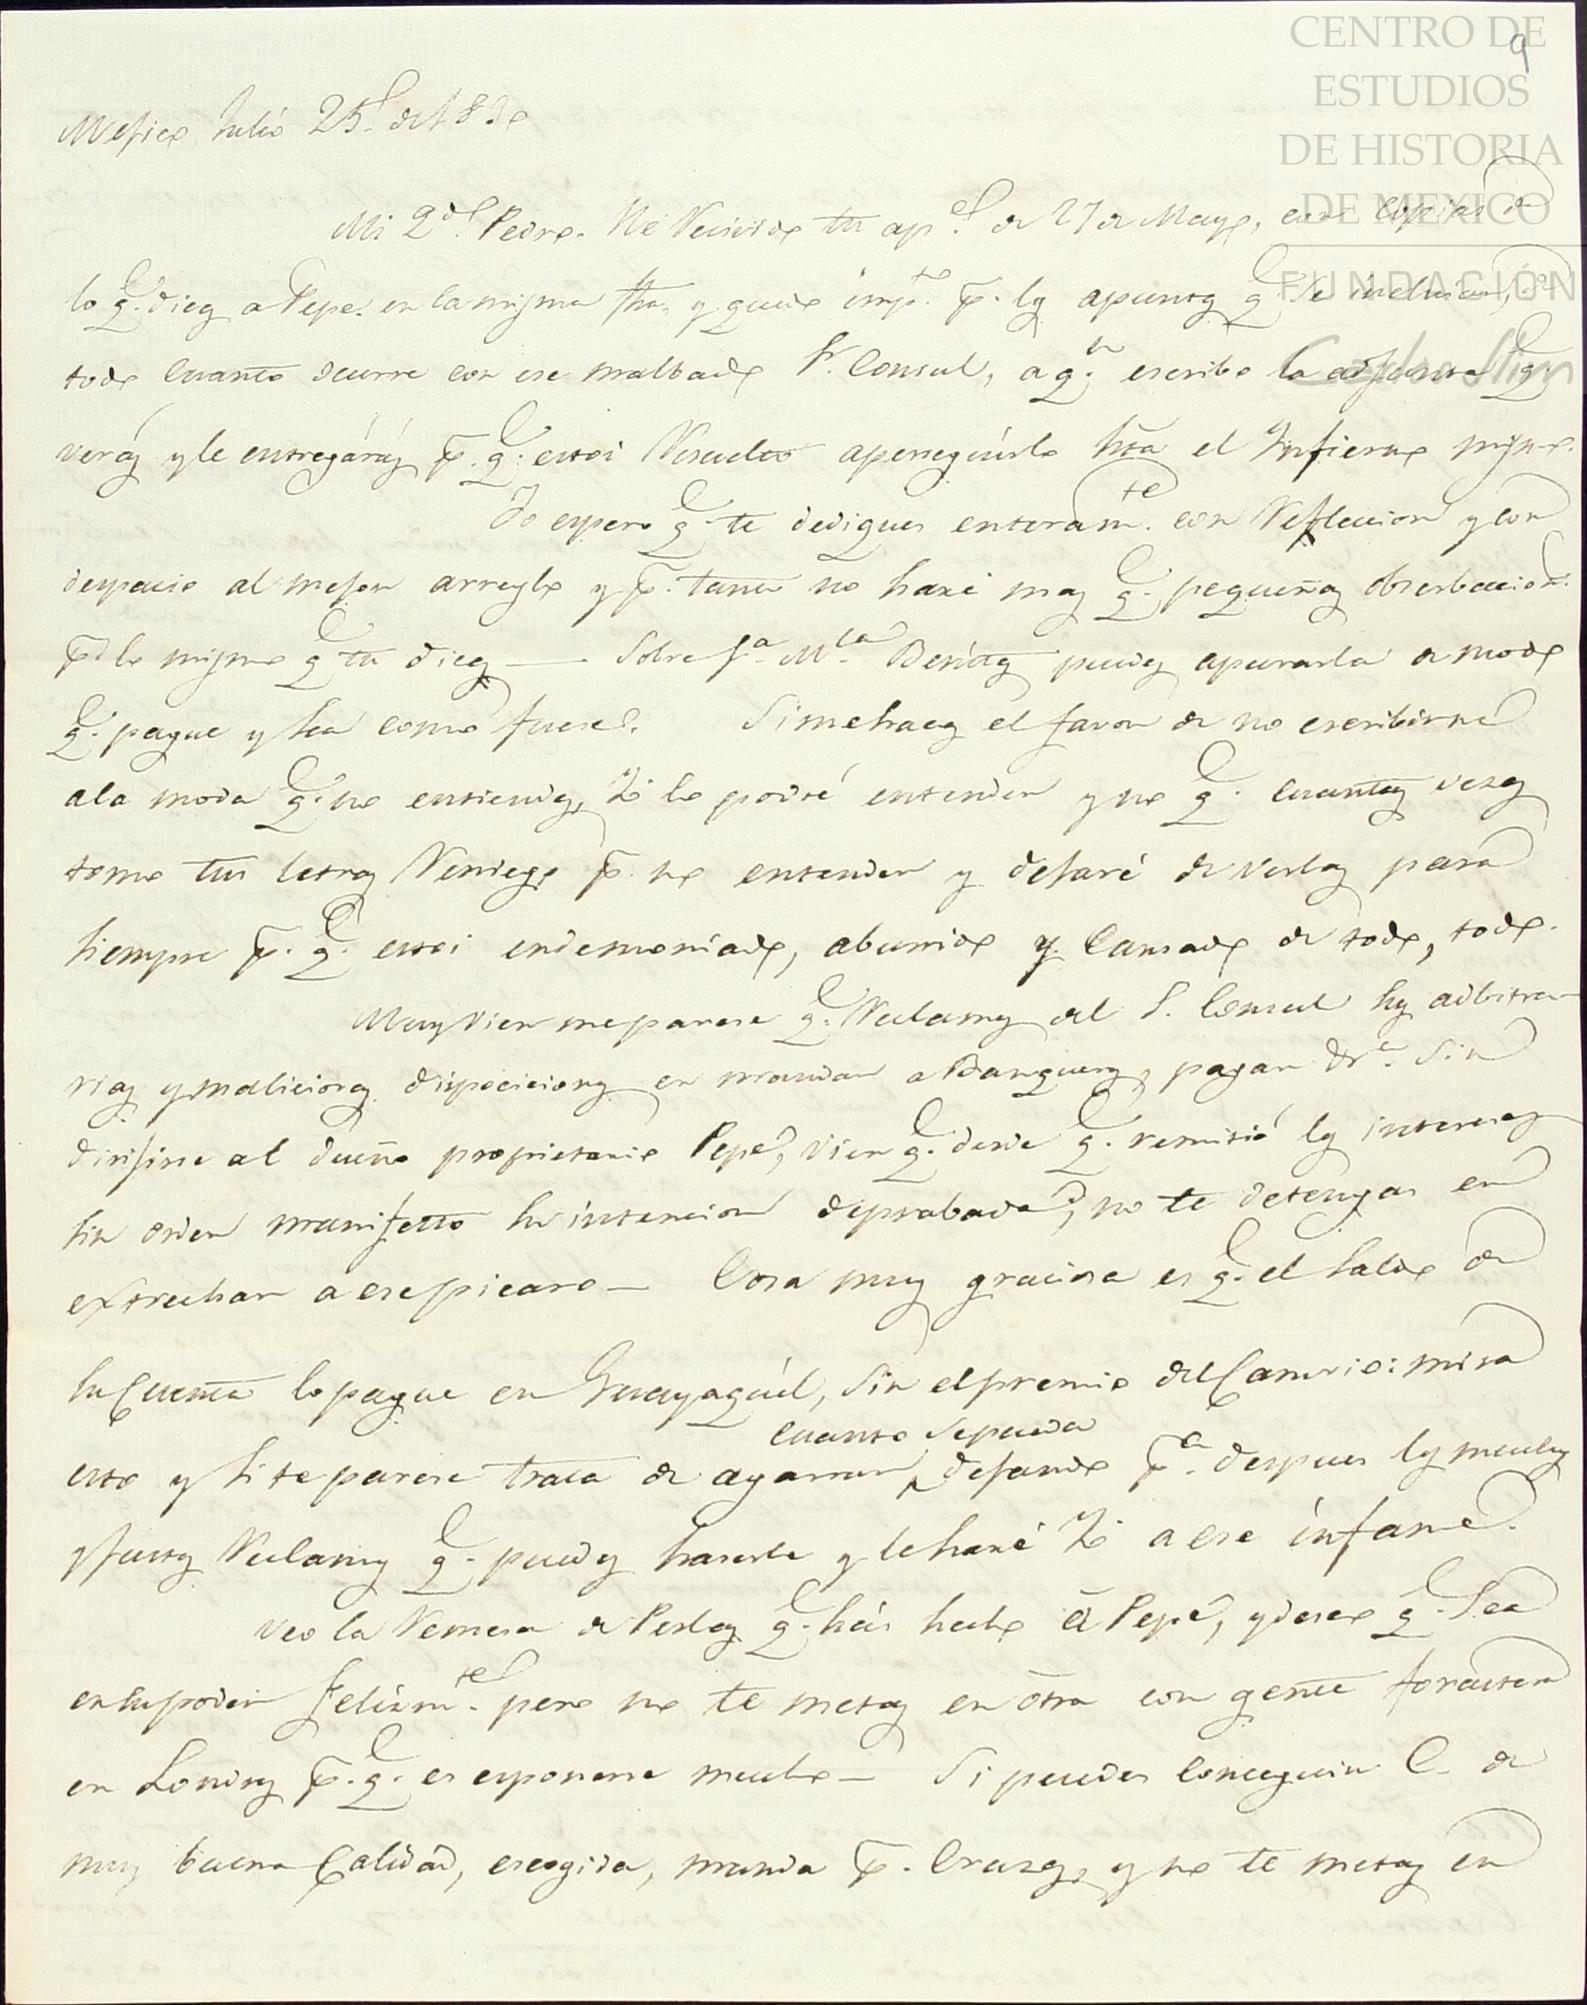 CENTRO DE
ESTUDIOS
DE HISTORIA
DE MEXICO
FUNDACIÓN
Carlos Slim
9
Mejico Julio 25. de 183
Mi q.do Pedro. He Recivido tu ap.e de 27 de Mayo, con copias de
lo q.e dices a Pepe en la misma fha, y quedo imp.to p.r los apuntes q.e se incluian, de
todo cuanto ocurre con ese maltbado S.r Consul, a q.n escribo la adjunta q.e
verás y le entregárás p.r q.e estoi Resuelto aperseguirlo hta el Infierno mismo.
Yo espero q.e te dediques enteram.te con Reflecion y con
despacio al mejor arreglo y p.r tanto no haré mas q.e pequeñas obserbacion.s
p.r lo mismo q.e tu dices — Sobre S.a M.la Benites puedes apurarla de modo
q.e pague y sea como fuese. Si me haces el favor de no escribirme
ala moda q.e no entiendes, Yo lo podré entender y no q.e cuantas veses
tomo tus letras Reniego p.r no entender y dejaré de verlas para
siempre p.r q.e estoi endemoniado, aburrido y Cansado de todo, todo.
Muy vien me parese q.e Reclames del S. Consul las adbitra-
rias y maliciosas disposiciones en mandar a Banqueros, pagar dr.s Sin
dirijirse al dueño propietario Pepe, vien q.e desde q.e remitió los intereses
sin orden manifesto su intencion deprabada, no te detengas en
extrechar a ese picaro — Cosa muy graciosa es q.e el Saldo de
su Cuenta lo pague en Guayaquil, Sin el premio del Camvio: mira
esto y si te parese trata de agarrar cuanto se pueda dejando p.a despues los muchos
y justos Reclamos q.e puedes haserle y le haré Yo a ese infame.
Veo la Remesa de Perlas q.e hás hecho á Pepe, y deseo q.e Sea
en su poder felism.te pero no te metas en otra con gente forastera
en Londres p.r q.e es esponerse mucho — Si puedes Conceguir C. de
muy buena Calidád, escogida, manda p.r Cruces, y no te metas en